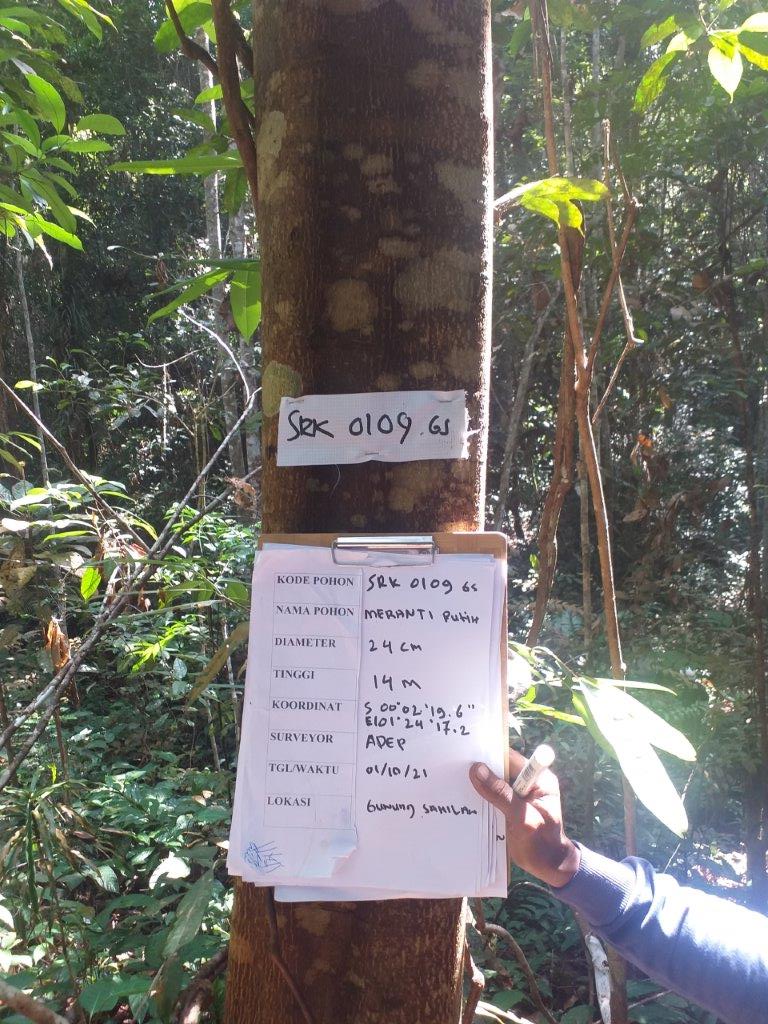 SRK 0109.GS
KODE POHON SRK 0109 GS
NAMA POHON MERANTI PUTIH
DIAMETER 24 CM
TINGGI 14 M
KOORDINAT S 00°02'19.6"
E101°24'17.2
SURVEYOR ADEP
TGL/WAKTU 01/10/21
LOKASI GUNUNG SAHILAN
2